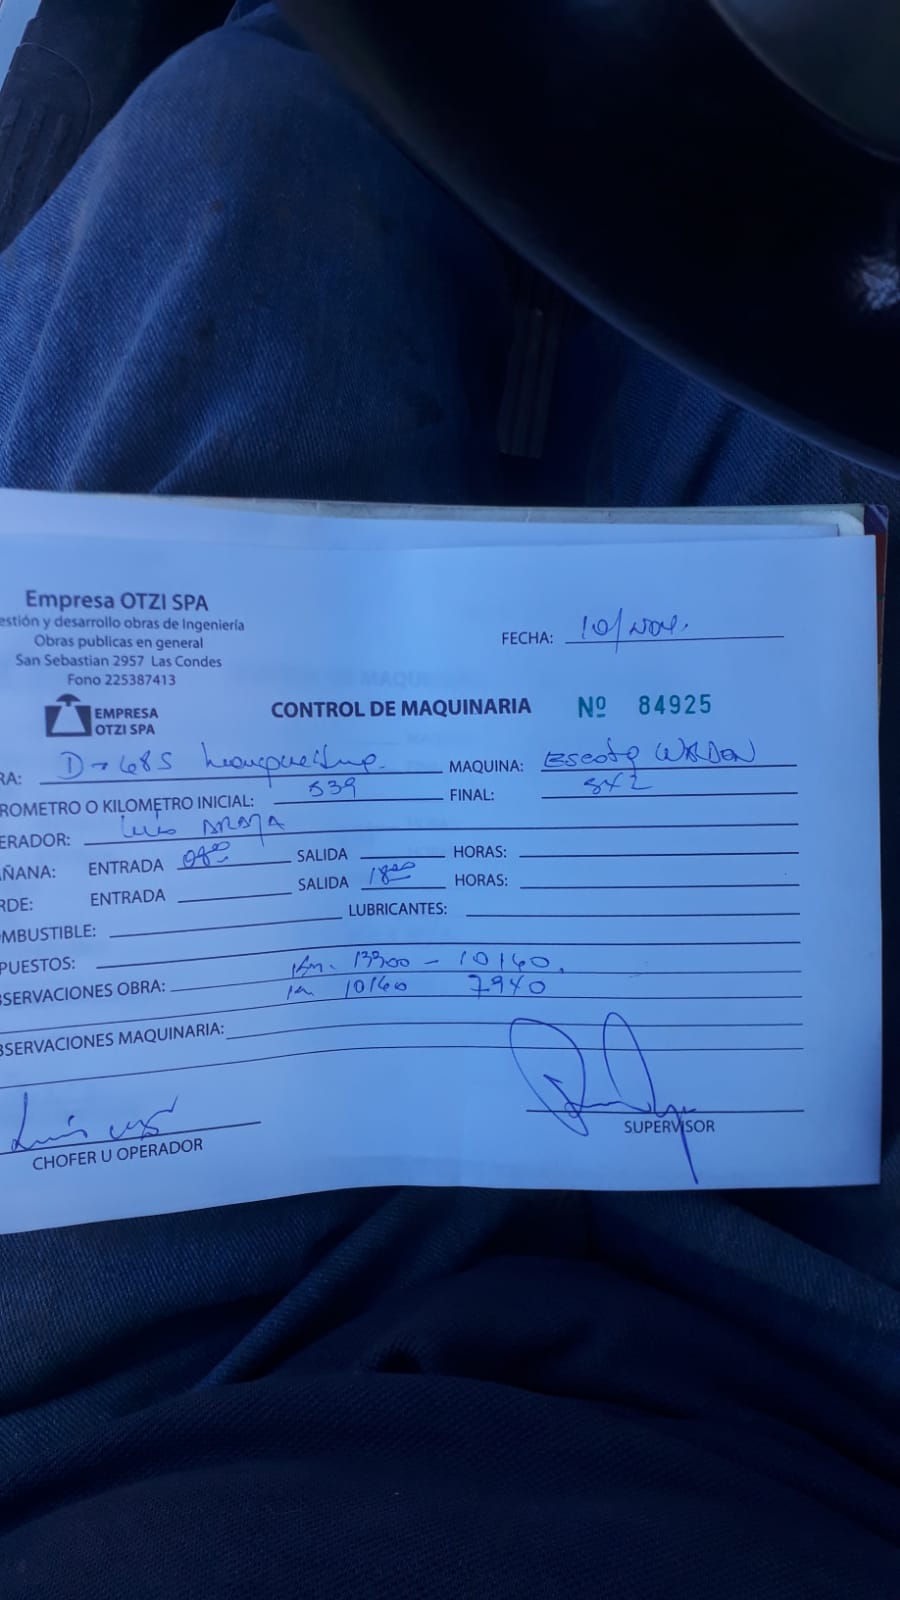 Empresa OTZI SPA
estión y desarrollo obras de Ingeniería
Obras publicas en general
San Sebastian 2957 Las Condes
Fono 225387413
EMPRESA
OTZI SPA
FECHA: 10/Nov.
CONTROL DE MAQUINARIA Nº 84925
RA: D-485 MAQUINA:
ROMETRO O KILOMETRO INICIAL: 539 FINAL: 542
ERADOR: Luis
ÑANA: ENTRADA 08:00 SALIDA HORAS:
RDE: ENTRADA SALIDA 18:00 HORAS:
MBUSTIBLE: LUBRICANTES:
PUESTOS:
SERVACIONES OBRA: Km. 13300 - 10160.
Km 10160 7940
BSERVACIONES MAQUINARIA:
CHOFER U OPERADOR
SUPERVISOR